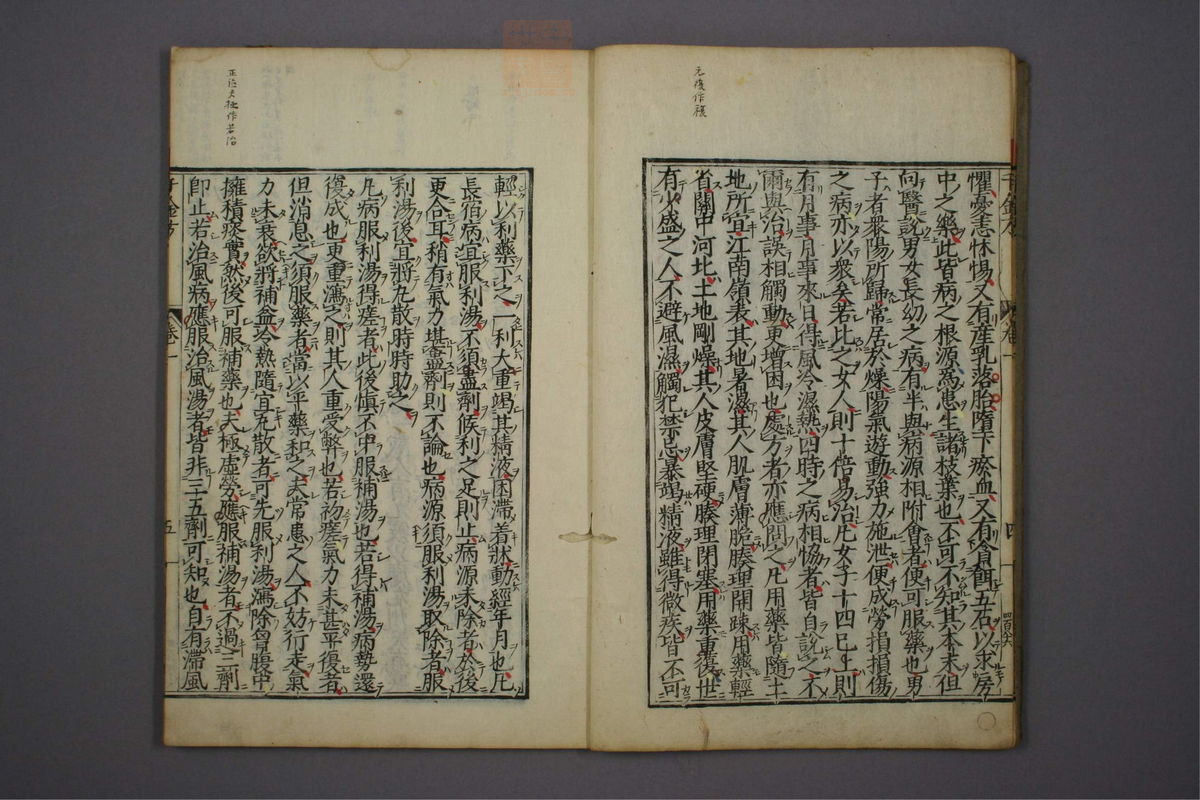 元復作複
懼憂恚怵惕又有産乳落胎墮下瘀血又有貪餌五石以求房
中之樂此皆病之根源爲患生諸枝葉也不可不知其本末但
向醫說男女長幼之病有半與病源相附會者便可服藥也男
子者衆陽所歸常居於燥陽氣遊動強力施泄便成勞損損傷
之病亦以衆矣若比之女人則十倍易治凡女子十四已上則
有月事月事來日得風冷濕熱四時之病相協者皆自說之不
爾與治誤相觸動更增困也處方者亦應問之凡用藥皆隨土
地所宜江南嶺表其地暑濕其人肌膚薄脆腠理開疎用藥輕
省關中河北土地剛燥其人皮膚堅硬腠理閉塞用藥重復世
有少盛之人不避風濕觸犯禁忌暴竭精液雖得微疾皆不可
四
輕以利藥下之一利大重竭其精液困滯着牀動經年月也凡
長宿病宜服利湯不須盡劑候利之足則止病源未除者於後
更合耳稍有氣力堪盡劑則不論也病源須服利湯取除者服
利湯後宜將丸散時時助之
凡病服利湯得瘥者此後慎不中服補湯也若得補湯病勢還
復成也更重瀉之則其人重受弊也若初瘥氣力未甚平復者
但消息之須服藥者當以平藥和之夫常患之人不妨行走氣
力未衰欲將補益冷熱隨宜丸散者可先服利湯瀉除胷腹中
擁積痰實然後可服補藥也夫極虛勞應服補湯者不過三劑
卽止若治風病應服治風湯者皆非三五劑可知也自有滯風
卷一
五